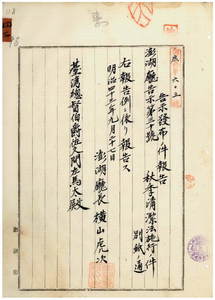 告示發布ノ件報告
澎湖廳告示第三十號 秋季清潔法施行ノ件
別紙ノ通
右報告例ニ依リ報告ス
明治四十三年九月二十七日
澎湖廳長 横山虎次
臺灣總督伯爵佐久間左馬太殿